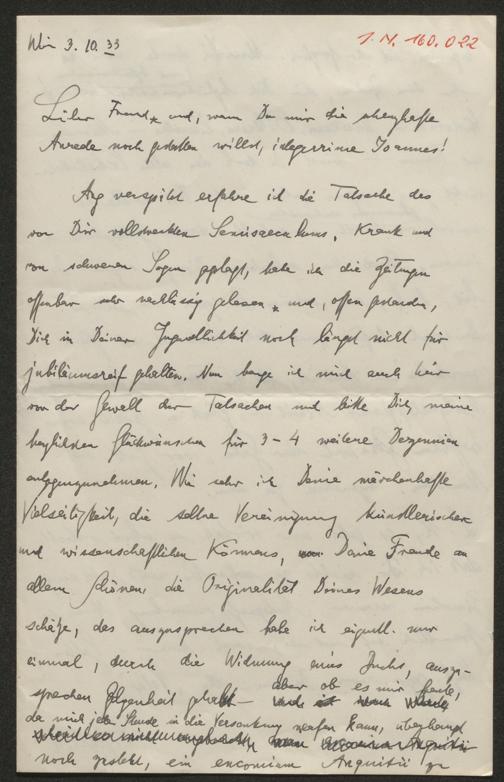 Wien 3. 10. 33
I. N. 160.022
Lieber Freund, und, wenn Du mir die scherzhafte
Anrede noch gestatten willst, integerrime Joannes!
Arg verspätet erfahre ich die Tatsache des
von Dir vollstreckten Semisaeculums. Krank und
von schweren Sorgen geplagt, habe ich die Zeitungen
offenbar sehr nachlässig gelesen, und, offen gestanden,
Dich in Deiner Jugendlichkeit noch längst nicht für
jubiläumsreif gehalten. Nun beuge ich mich auch hier
vor der Gewalt der Tatsachen und bitte Dich, meine
herzlichsten Glückwünsche für 3–4 weitere Dezennien
entgegenzunehmen. Wie sehr ich Deine märchenhafte
Vielseitigkeit, die seltne Vereinigung künstlerischen
und wissenschaftlichen Könnens, Deine Freude an
allem Schönen, die Originalität Deines Wesens
schätze, das auszusprechen habe ich eigentl. nur
einmal, durch die Widmung eines Buchs, auszu-
sprechen Gelegenheit gehabt – aber ob es mir heute,
da mich jede Stunde in die Versenkung werfen kann, überhaupt
noch zusteht, ein encomium Anguitii zu